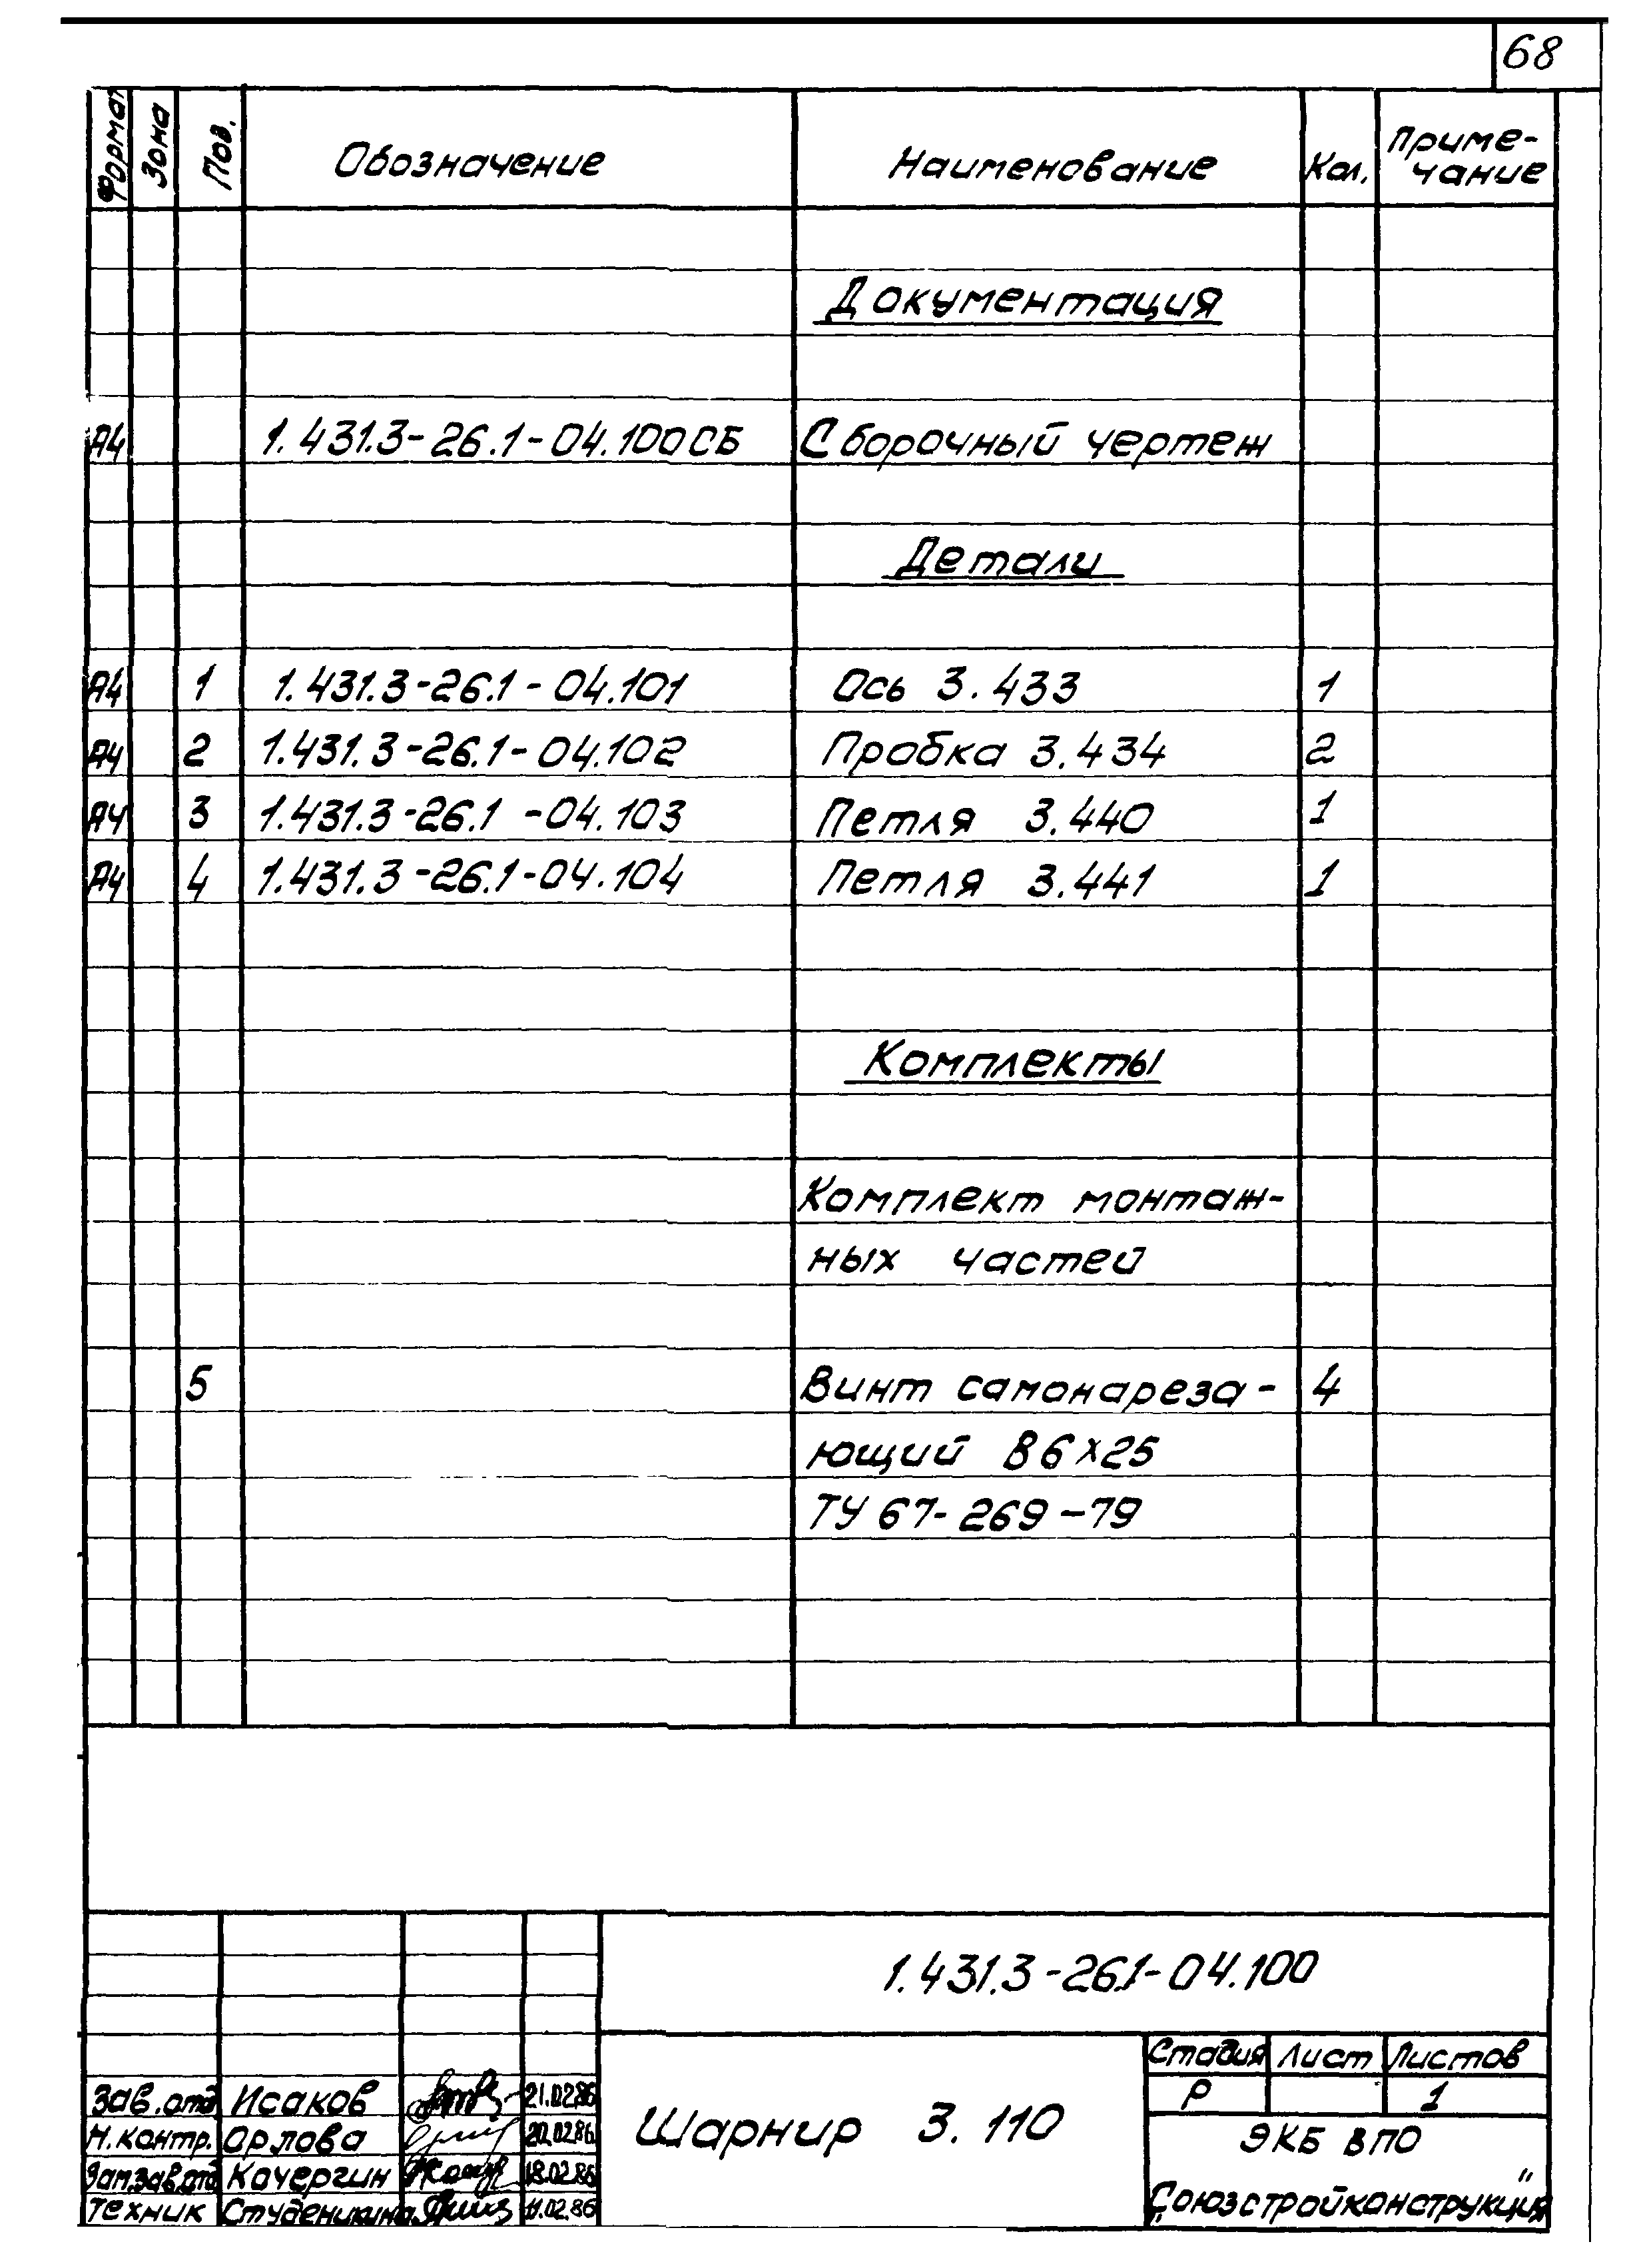 68
Формат Зона Поз. Обозначение Наименование Кол. Приме-
чание
Документация
А4 1.431.3-26.1-04.100СБ Сборочный чертеж
Детали
А4 1 1.431.3-26.1-04.101 Ось 3.433 1
А4 2 1.431.3-26.1-04.102 Пробка 3.434 2
А4 3 1.431.3-26.1-04.103 Петля 3.440 1
А4 4 1.431.3-26.1-04.104 Петля 3.441 1
Комплекты
Комплект монтаж-
ных частей
5 Винт самонареза- 4
ющий В6х25
ТУ 67-269-79
1.431.3-26.1-04.100
Стадия Лист Листов
Р 1
Зав.отд Исаков 21.02.86
Н.контр. Орлова 20.02.86
Зам.зав.отд Кочергин 18.02.86
Техник Студеникина 11.02.86
Шарнир 3.110
ЭКБ ВПО
„Союзстройконструкция"